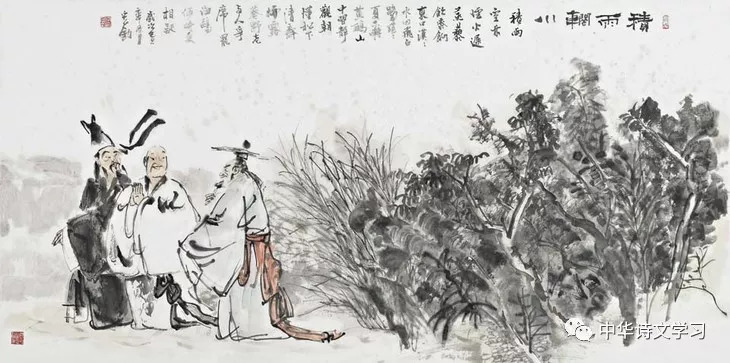 積雨輞川
積雨
空林
煙火遲
蒸藜
炊黍餉
東菑漠漠
水田飛白
鷺陰陰
夏木囀
黃鸝山
中習靜
觀朝
槿松下
清齋
折露葵
野老
與人爭
席罷
海鷗
何事更
相疑
中华诗文学习